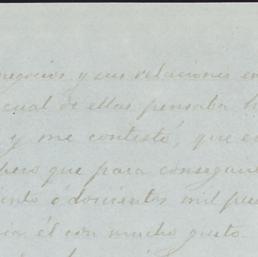 negocios y sus relaciones en
cual de ellas pensaba h
y me contestó, que e
pero que para conseguir
ento ó docientos mil pes
ia él con mucho gusto